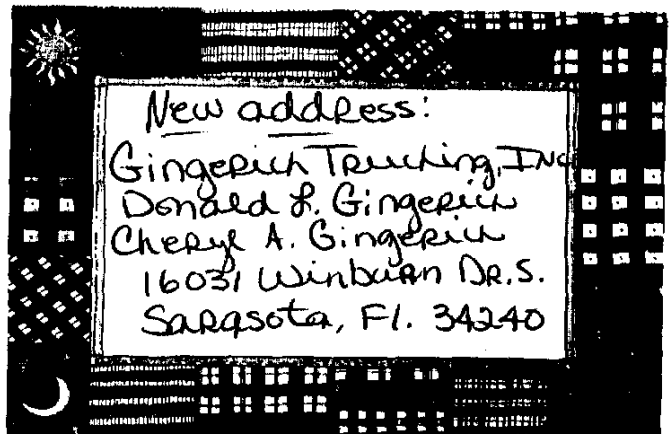 New address:
Gingerich Trucking, Inc
Donald L. Gingerich
Cheryl A. Gingerich
16031 Winburn Dr. S.
Sarasota, Fl. 34240